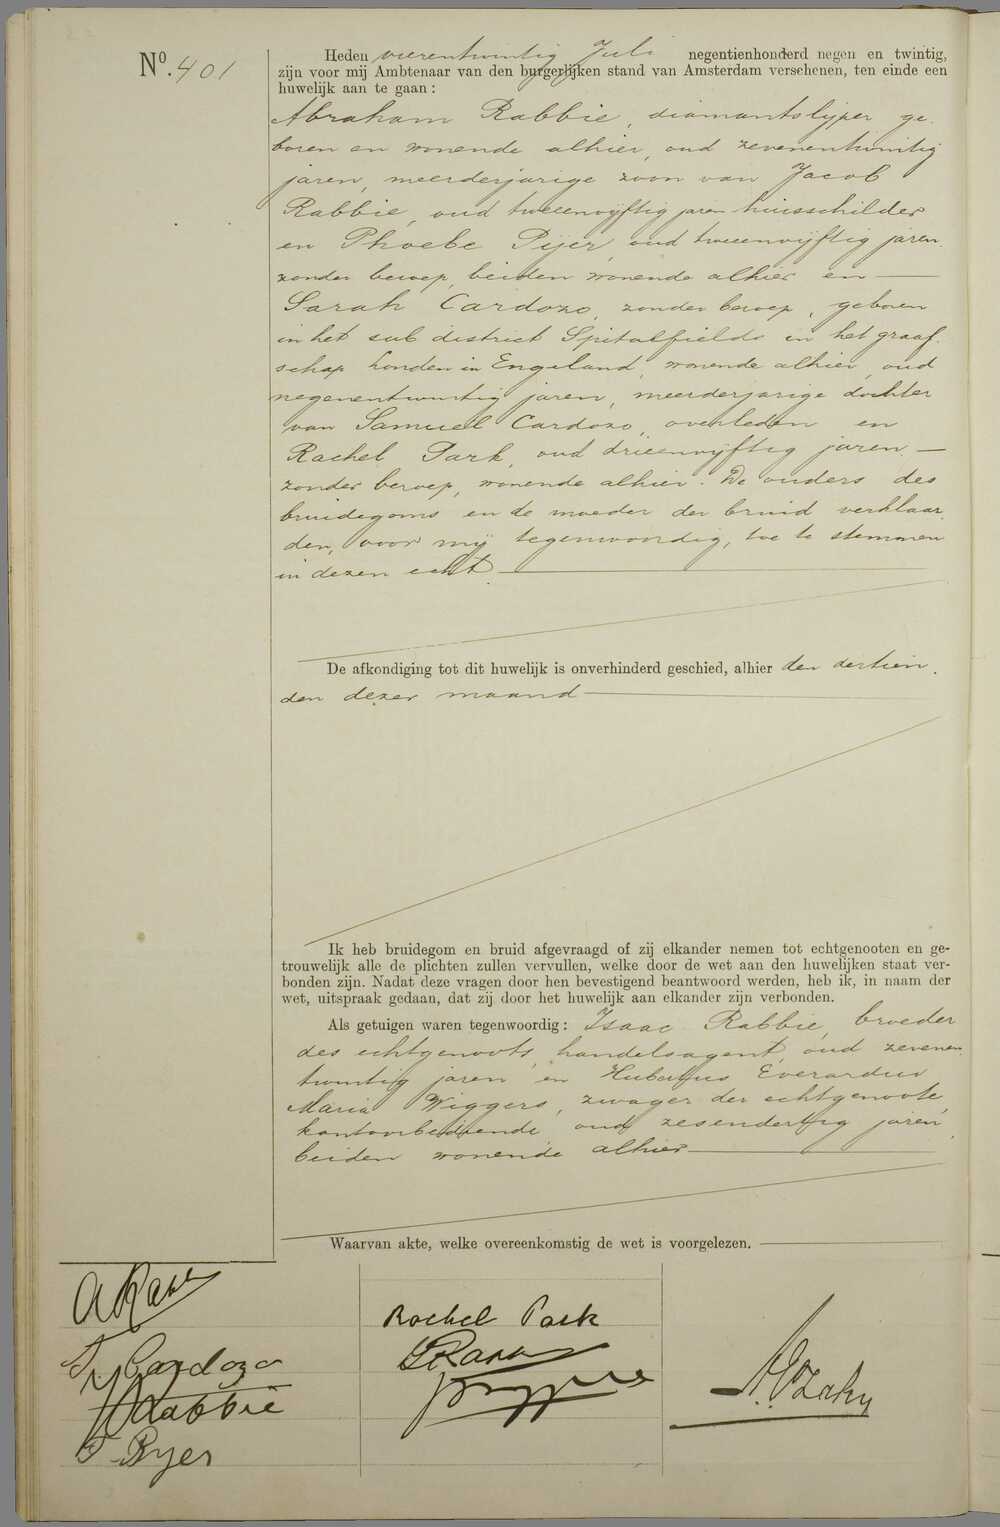 Nº. 401
Heden vierentwintig Juli negentienhonderd negen en twintig,
zijn voor mij Ambtenaar van den burgerlijken stand van Amsterdam verschenen, ten einde een
huwelijk aan te gaan:
Abraham Rabbie, diamantslijper ge-
boren en wonende alhier, oud zevenentwintig
jaren, meerderjarige zoon van Jacob
Rabbie, oud tweeenvijftig jaren huisschilder
en Phoebe Pijer, oud tweeenvijftig jaren
zonder beroep, beiden wonende alhier en
Sarah Cardozo, zonder beroep, geboren
in het sub district Spitalfields in het graaf-
schap Londen in Engeland, wonende alhier, oud
negenentwintig jaren, meerderjarige dochter
van Samuel Cardozo, overleden en
Rachel Park, oud drieenvijftig jaren
zonder beroep, wonende alhier. De ouders des
bruidegoms en de moeder der bruid verklaar-
den, voor mij tegenwoordig, toe te stemmen
in dezen echt.
De afkondiging tot dit huwelijk is onverhinderd geschied, alhier den dertien-
den dezer maand
Ik heb bruidegom en bruid afgevraagd of zij elkander nemen tot echtgenooten en ge-
trouwelijk alle de plichten zullen vervullen, welke door de wet aan den huwelijken staat ver-
bonden zijn. Nadat deze vragen door hen bevestigend beantwoord werden, heb ik, in naam der
wet, uitspraak gedaan, dat zij door het huwelijk aan elkander zijn verbonden.
Als getuigen waren tegenwoordig: Isaac Rabbie, broeder
des echtgenoots, handelsagent, oud zevenen-
twintig jaren en Hubertus Everardus
Maria Wiggers, zwager der echtgenoote,
kantoorbediende oud zesendertig jaren,
beiden wonende alhier
Waarvan akte, welke overeenkomstig de wet is voorgelezen.
Cardozo
Rabbie
Pyer
Rachel Park